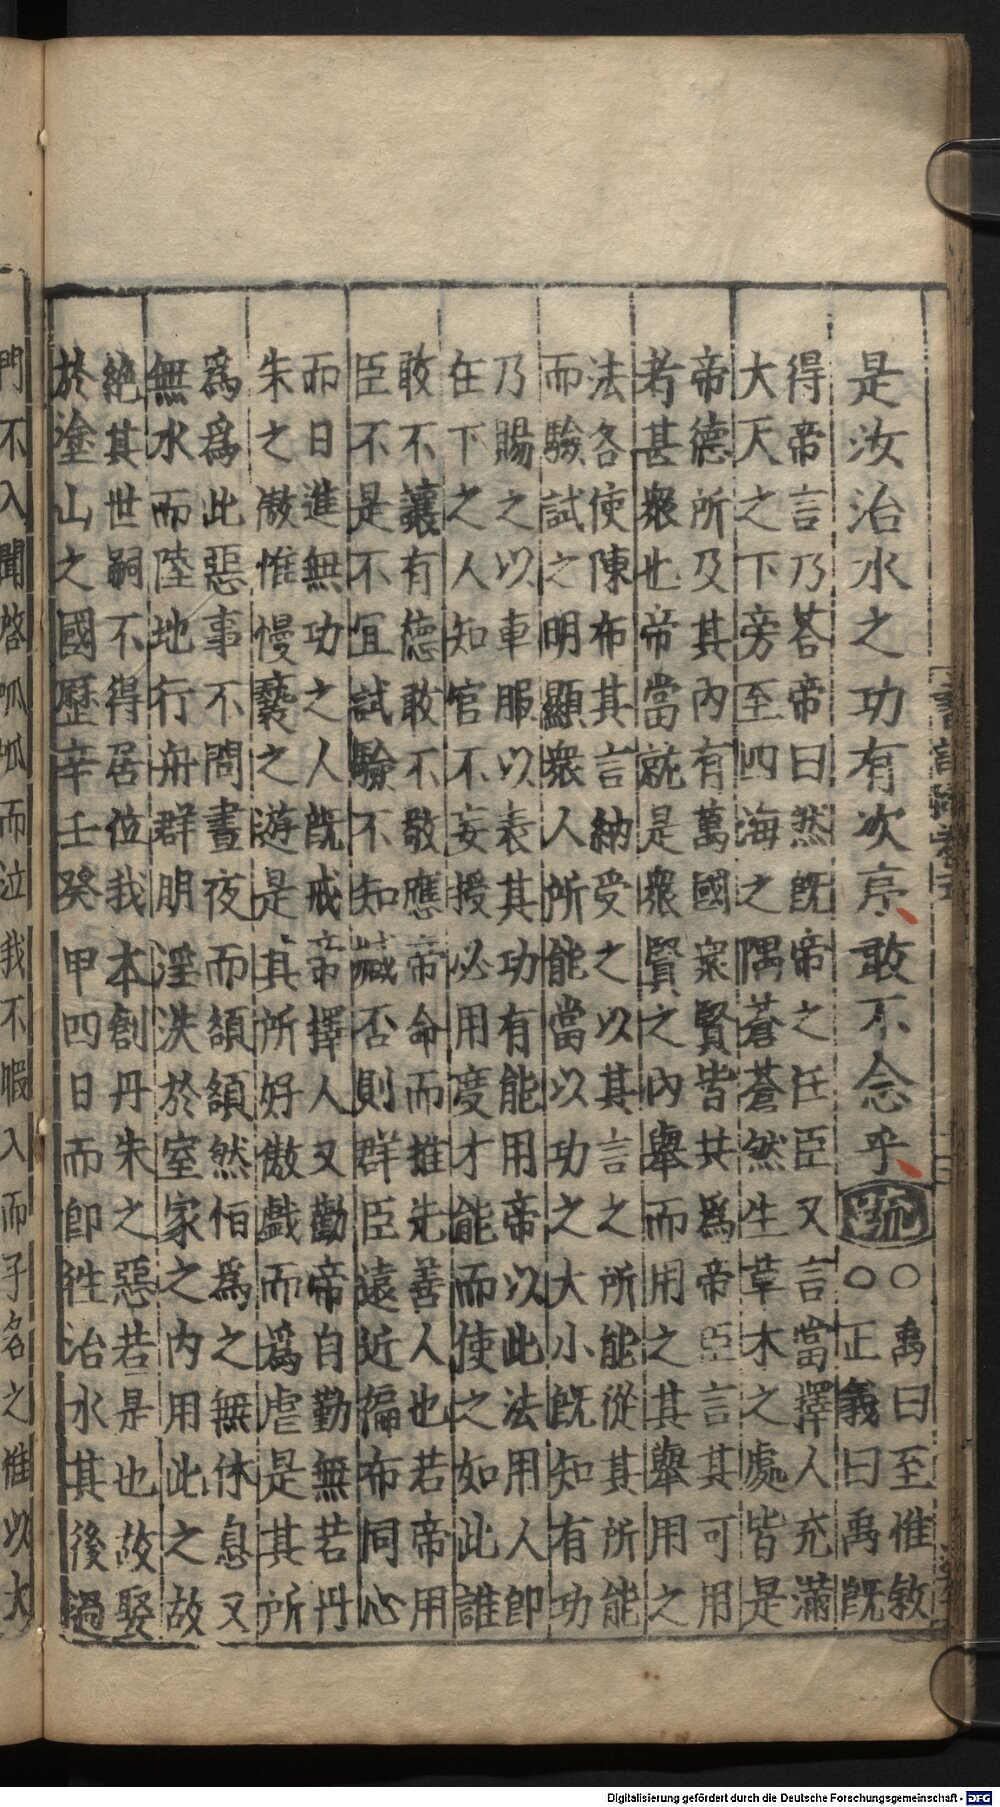 是汝治水之功有次序敢不念乎疏
○禹曰至惟敘
○正義曰禹既
得帝言乃荅帝曰然既帝之任臣又言當擇人充滿
大天之下旁至四海之隅蒼蒼然生草木之處皆是
帝德所及其內有萬國眾賢皆共為帝臣言其可用
者甚眾也帝當就是眾賢之內舉而用之其舉用之
法各使陳布其言納受之以其言之所能從其所能
而驗試之明顯眾人所能當以功之大小既知有功
乃賜之以車服以表其功有能用帝以此法用人即
在下之人知官不妄授必用度才能而使之如此誰
敢不讓有德敢不敬應帝命而推先善人也若帝用
臣不是不宜試驗不知臧否則群臣遠近徧布同心
而日進無功之人既戒帝擇人又勸帝自勤無若丹
朱之傲惟慢褻之遊是其所好傲戲而為虐是其所
為為此惡事不問晝夜而頟頟然恒為之無休息又
無水而陸地行舟群朋淫泆於室家之內用此之故
絕其世嗣不得居位我本創丹朱之惡若是也故娶
於塗山之國歷辛壬癸甲四日而即往治水其後過
門不入聞啓呱呱而泣我不暇入而子名之惟以大
Digitalisierung gefördert durch die Deutsche Forschungsgemeinschaft - DFG